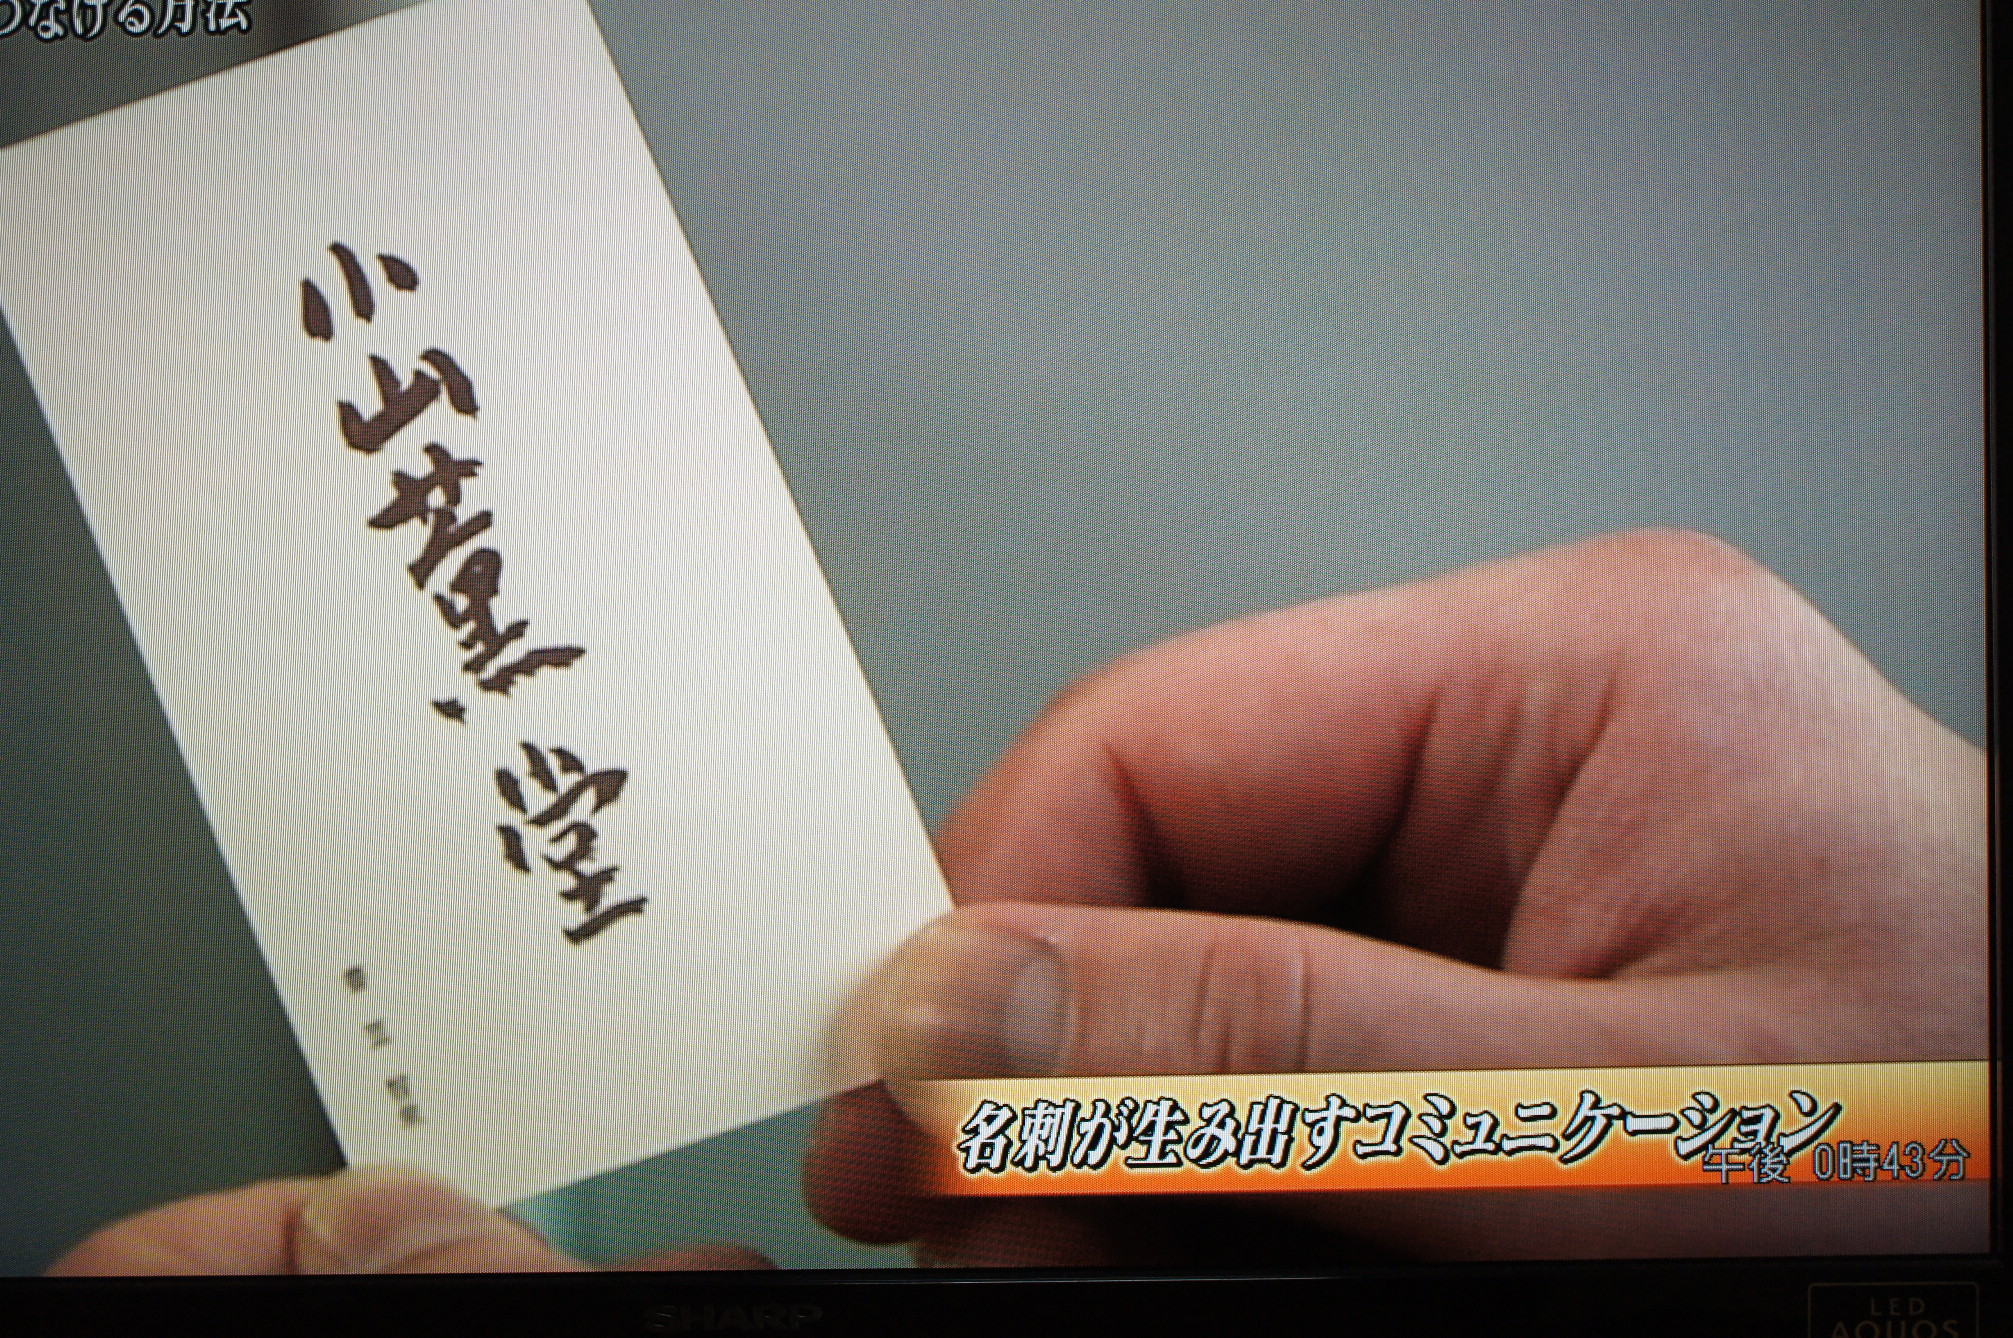 つなげる方法
小山薫堂
名刺が生み出すコミュニケーション
午後 0時43分
SHARP
LED
AQUOS